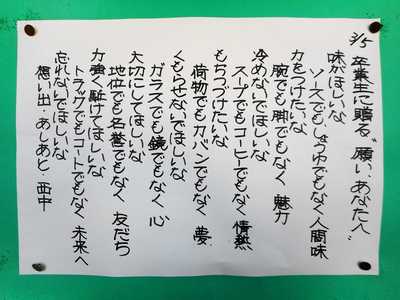 3/5 卒業生に贈る〝願い・あなた人〟
味がほしいな
ソースでもしょうゆでもなく人間味
力をつけたいな
腕でも脚でもなく 魅力
冷めないでほしいな
スープでもコーヒーでもなく 情熱
もちつづけたいな
荷物でもカバンでもなく 夢
くもらせないでほしいな
ガラスでも鏡でもなく 心
大切にしてほしいな
地位でも名誉でもなく 友だち
力強く駈けてほしいな
トラックでもコートでもなく 未来へ
忘れないでほしいな
想い出・あしあと・西中